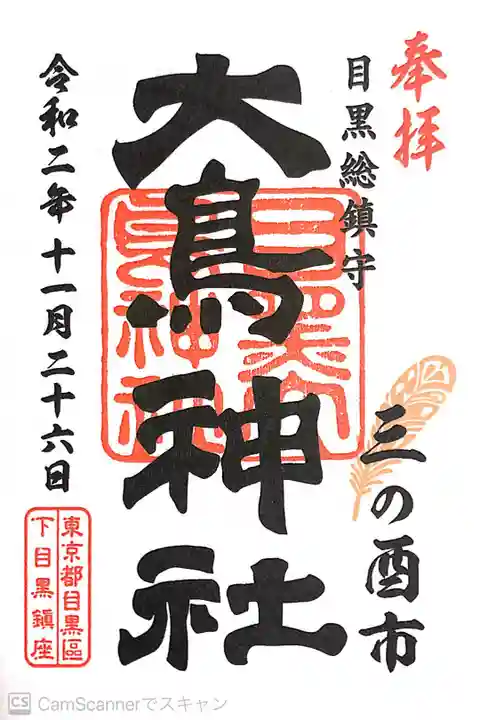 奉拝
目黒総鎮守
三の酉市
大鳥神社
目黒大
鳥神社
令和二年十一月二十六日
東京都目黒區
下目黒鎮座
CS CamScannerでスキャン